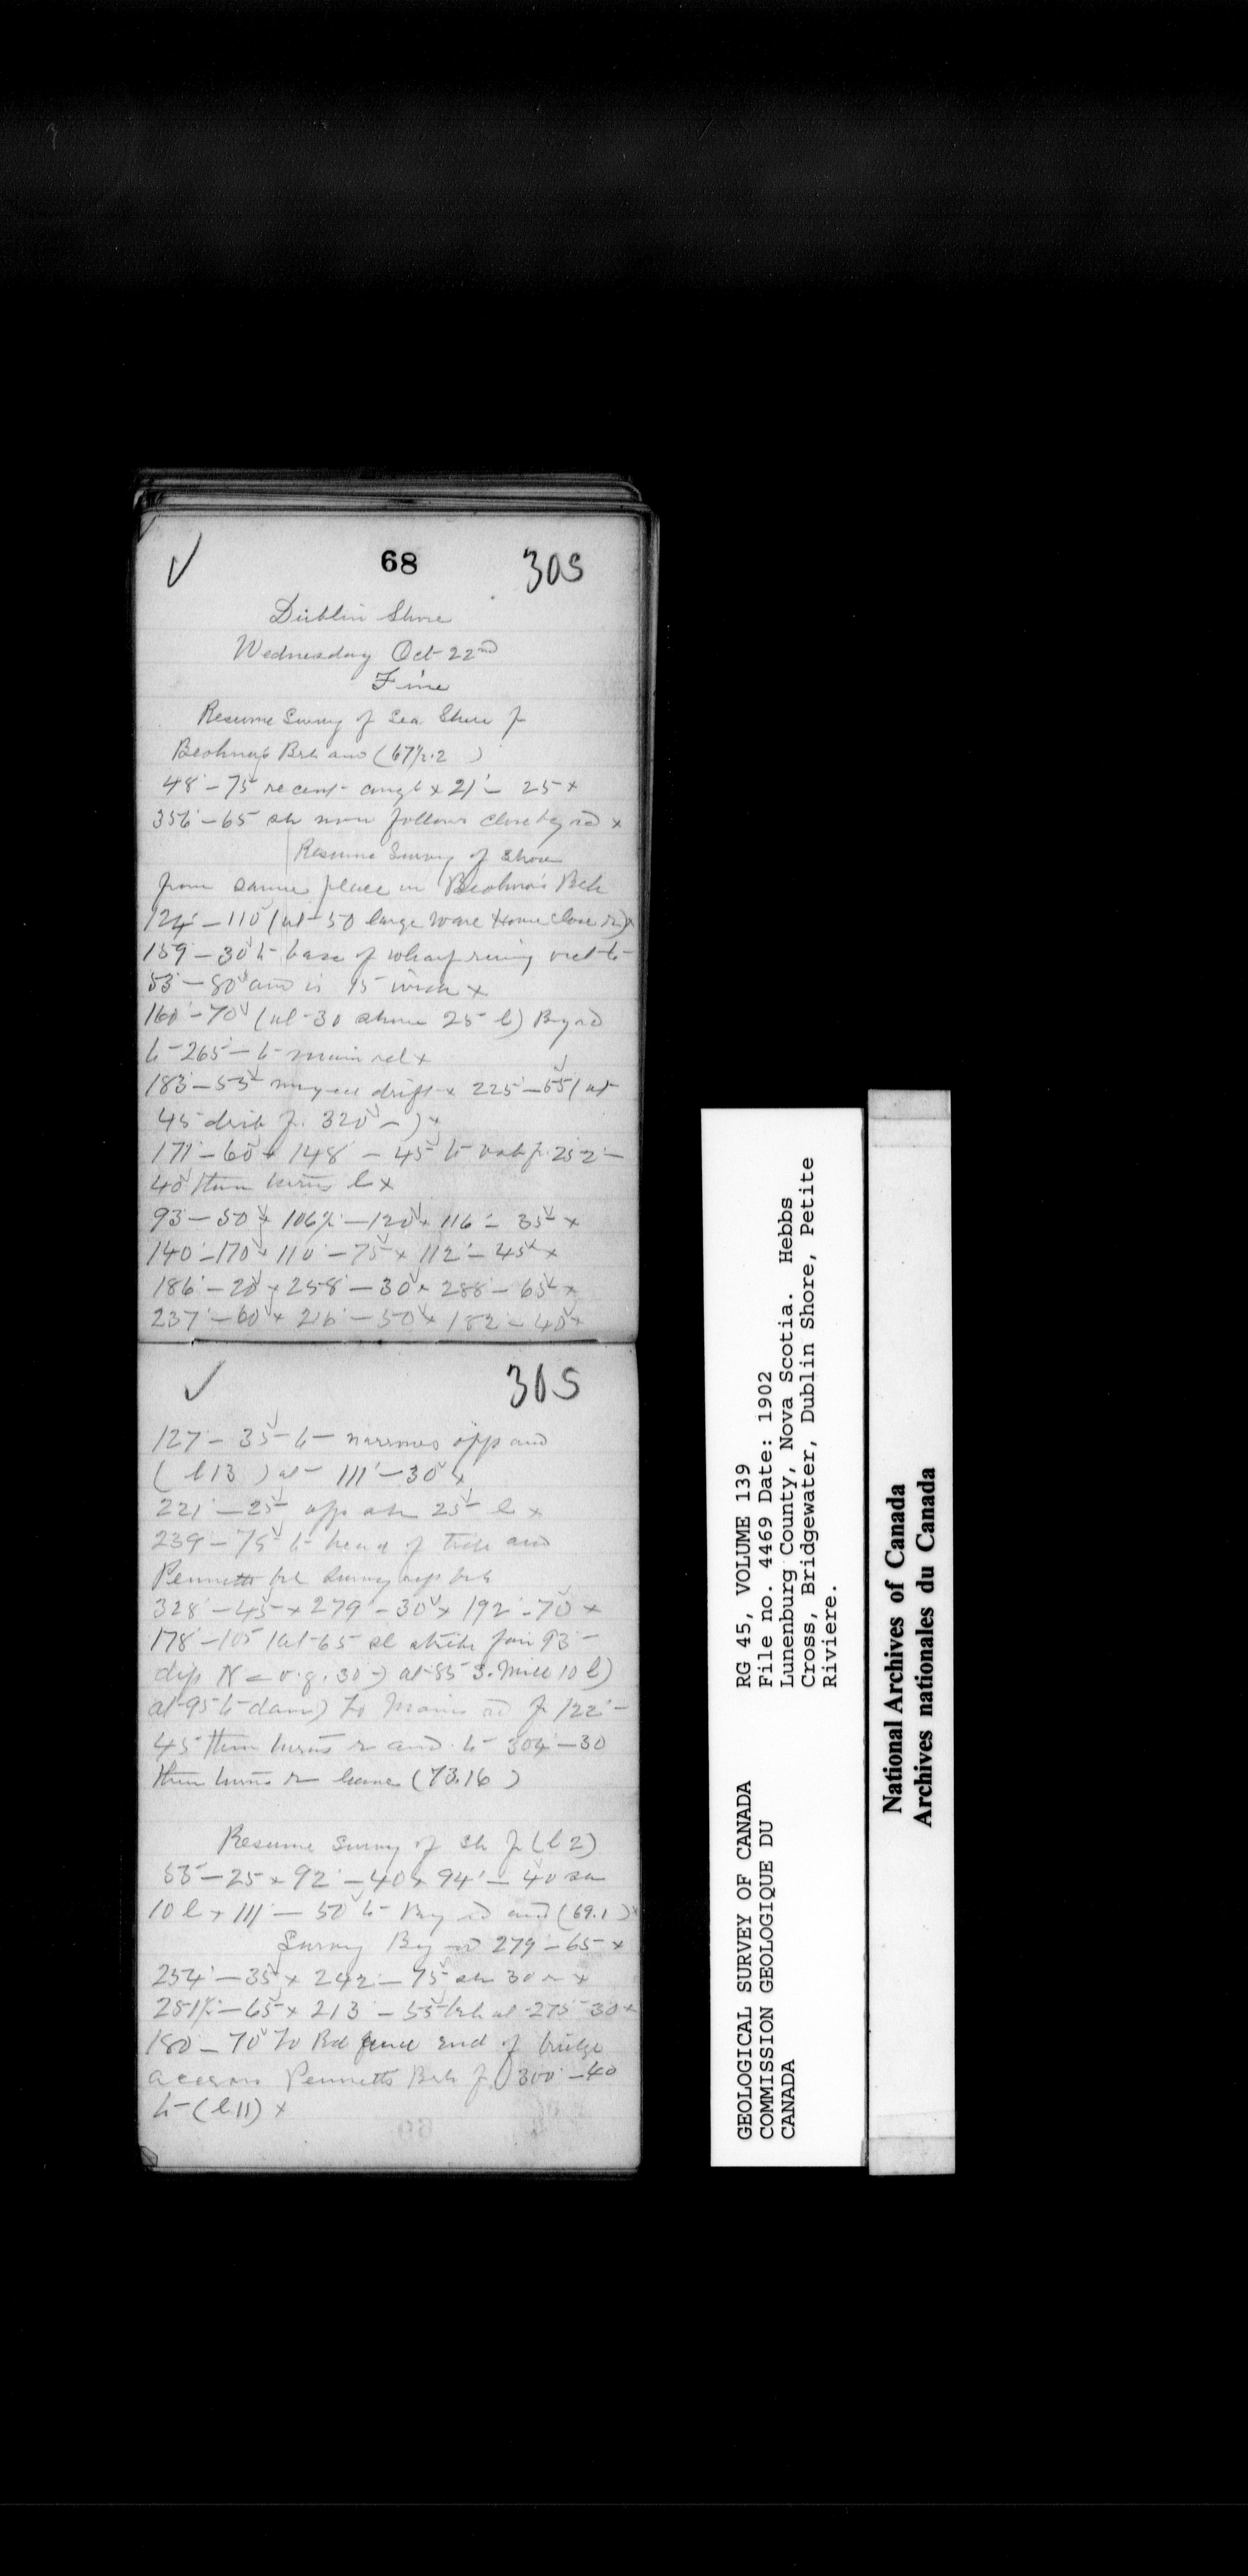 68 30S
Dublin Shore
Wednesday Oct 22nd
Fine
Resume Survey of Sea Shore f
(67½.2 )
48° – 75 recent x 21° – 25 x
356° – 65 sh now follows close by rd x
Resume Survey of Shore
from same place in
124° – 110 (at 50 large ware house close r) x
159° – 30 to base of wharf
53° – 80 and is 15 wide x
160° – 70 (at 30 shore 25 l) By rd
to 265° – to main rd x
183° – 55 drift x 225° – 55 (at
45 f. 320 – ) x
171° – 60 x 148° – 45 to f. 252° –
40 then turns l x
93° – 50 x 106½° – 120 x 116° – 35 x
140° – 170 x 110° – 75 x 112° – 45 x
186° – 20 x 258° – 30 x 288° – 65 x
237° – 60 x 216° – 50 x 182° – 40 x
30S
127° – 35 to narrows opp and
( l 13 ) at 111° – 30 x
221° – 25 opp sh 25 l x
239° – 75 to head of tide and
Pennetts brk survey up brk
328° – 45 x 279° – 30 x 192° – 70 x
178° – 105 (at 65 sl strike 93° –
dip N < v.g. 30 –) at 85 S. Mill 10 l)
at 95 to dam) to Main rd f 122° –
45 then turns r and to 304 – 30
then turns r leave (73.16 )
Resume Survey of sh f (l 2)
53° – 25 x 92° – 40 x 94° – 40 sh
10 l x 111° – 50 to By rd and (69.1 ) x
Survey By rd 279° – 65 x
254° – 35 x 242° – 75 sh 30 r x
251½° – 65 x 213° – 55 brk at 275° 30 x
180° – 70 to Rd end of bridge
across Pennetts Brk f 300° – 40
to (l 11) x
GEOLOGICAL SURVEY OF CANADA
COMMISSION GEOLOGIQUE DU
CANADA
RG 45, VOLUME 139
File no. 4469 Date: 1902
Lunenburg County, Nova Scotia. Hebbs
Cross, Bridgewater, Dublin Shore, Petite
Riviere.
National Archives of Canada
Archives nationales du Canada